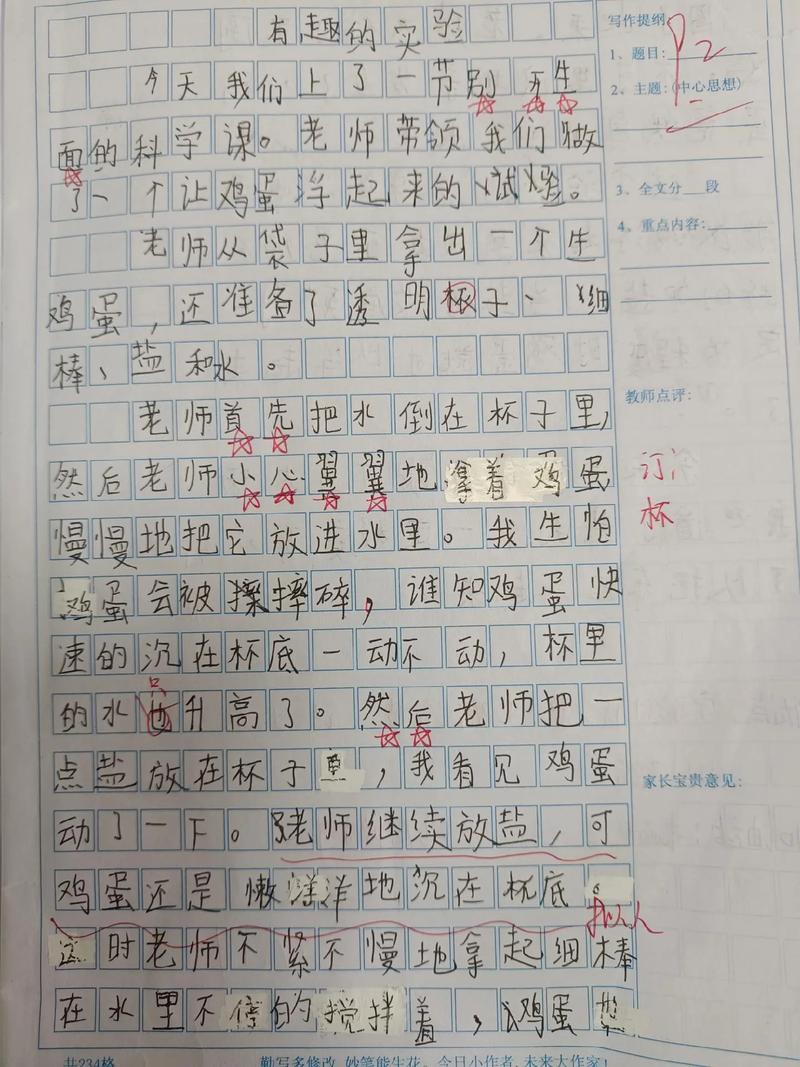 有趣的实验
今天我们上了一节别开生
面的科学课。老师带领我们做
了一个让鸡蛋浮起来的试验。
老师从袋子里拿出一个生
鸡蛋,还准备了透明杯子、细
棒、盐和水。
老师首先把水倒在杯子里,
然后老师小心翼翼地拿着鸡蛋
慢慢地把它放进水里。我生怕
鸡蛋会被摔碎,谁知鸡蛋快
速的沉在杯底一动不动,杯里
的水也升高了。然后老师把一
点盐放在杯子里,我看见鸡蛋
动了一下。老师继续放盐,可
鸡蛋还是懒洋洋地沉在杯底。
拟人
这时老师不紧不慢地拿起细棒
在水里不停的搅拌着,鸡蛋
共234格
勤写多修改,妙笔能生花。今日小作者,未来大作家!
写作提纲
P2
1、题目:
2、主题:(中心思想)
3、全文分 段
4、重点内容:
教师点评:
订:
杯
家长宝贵意见: